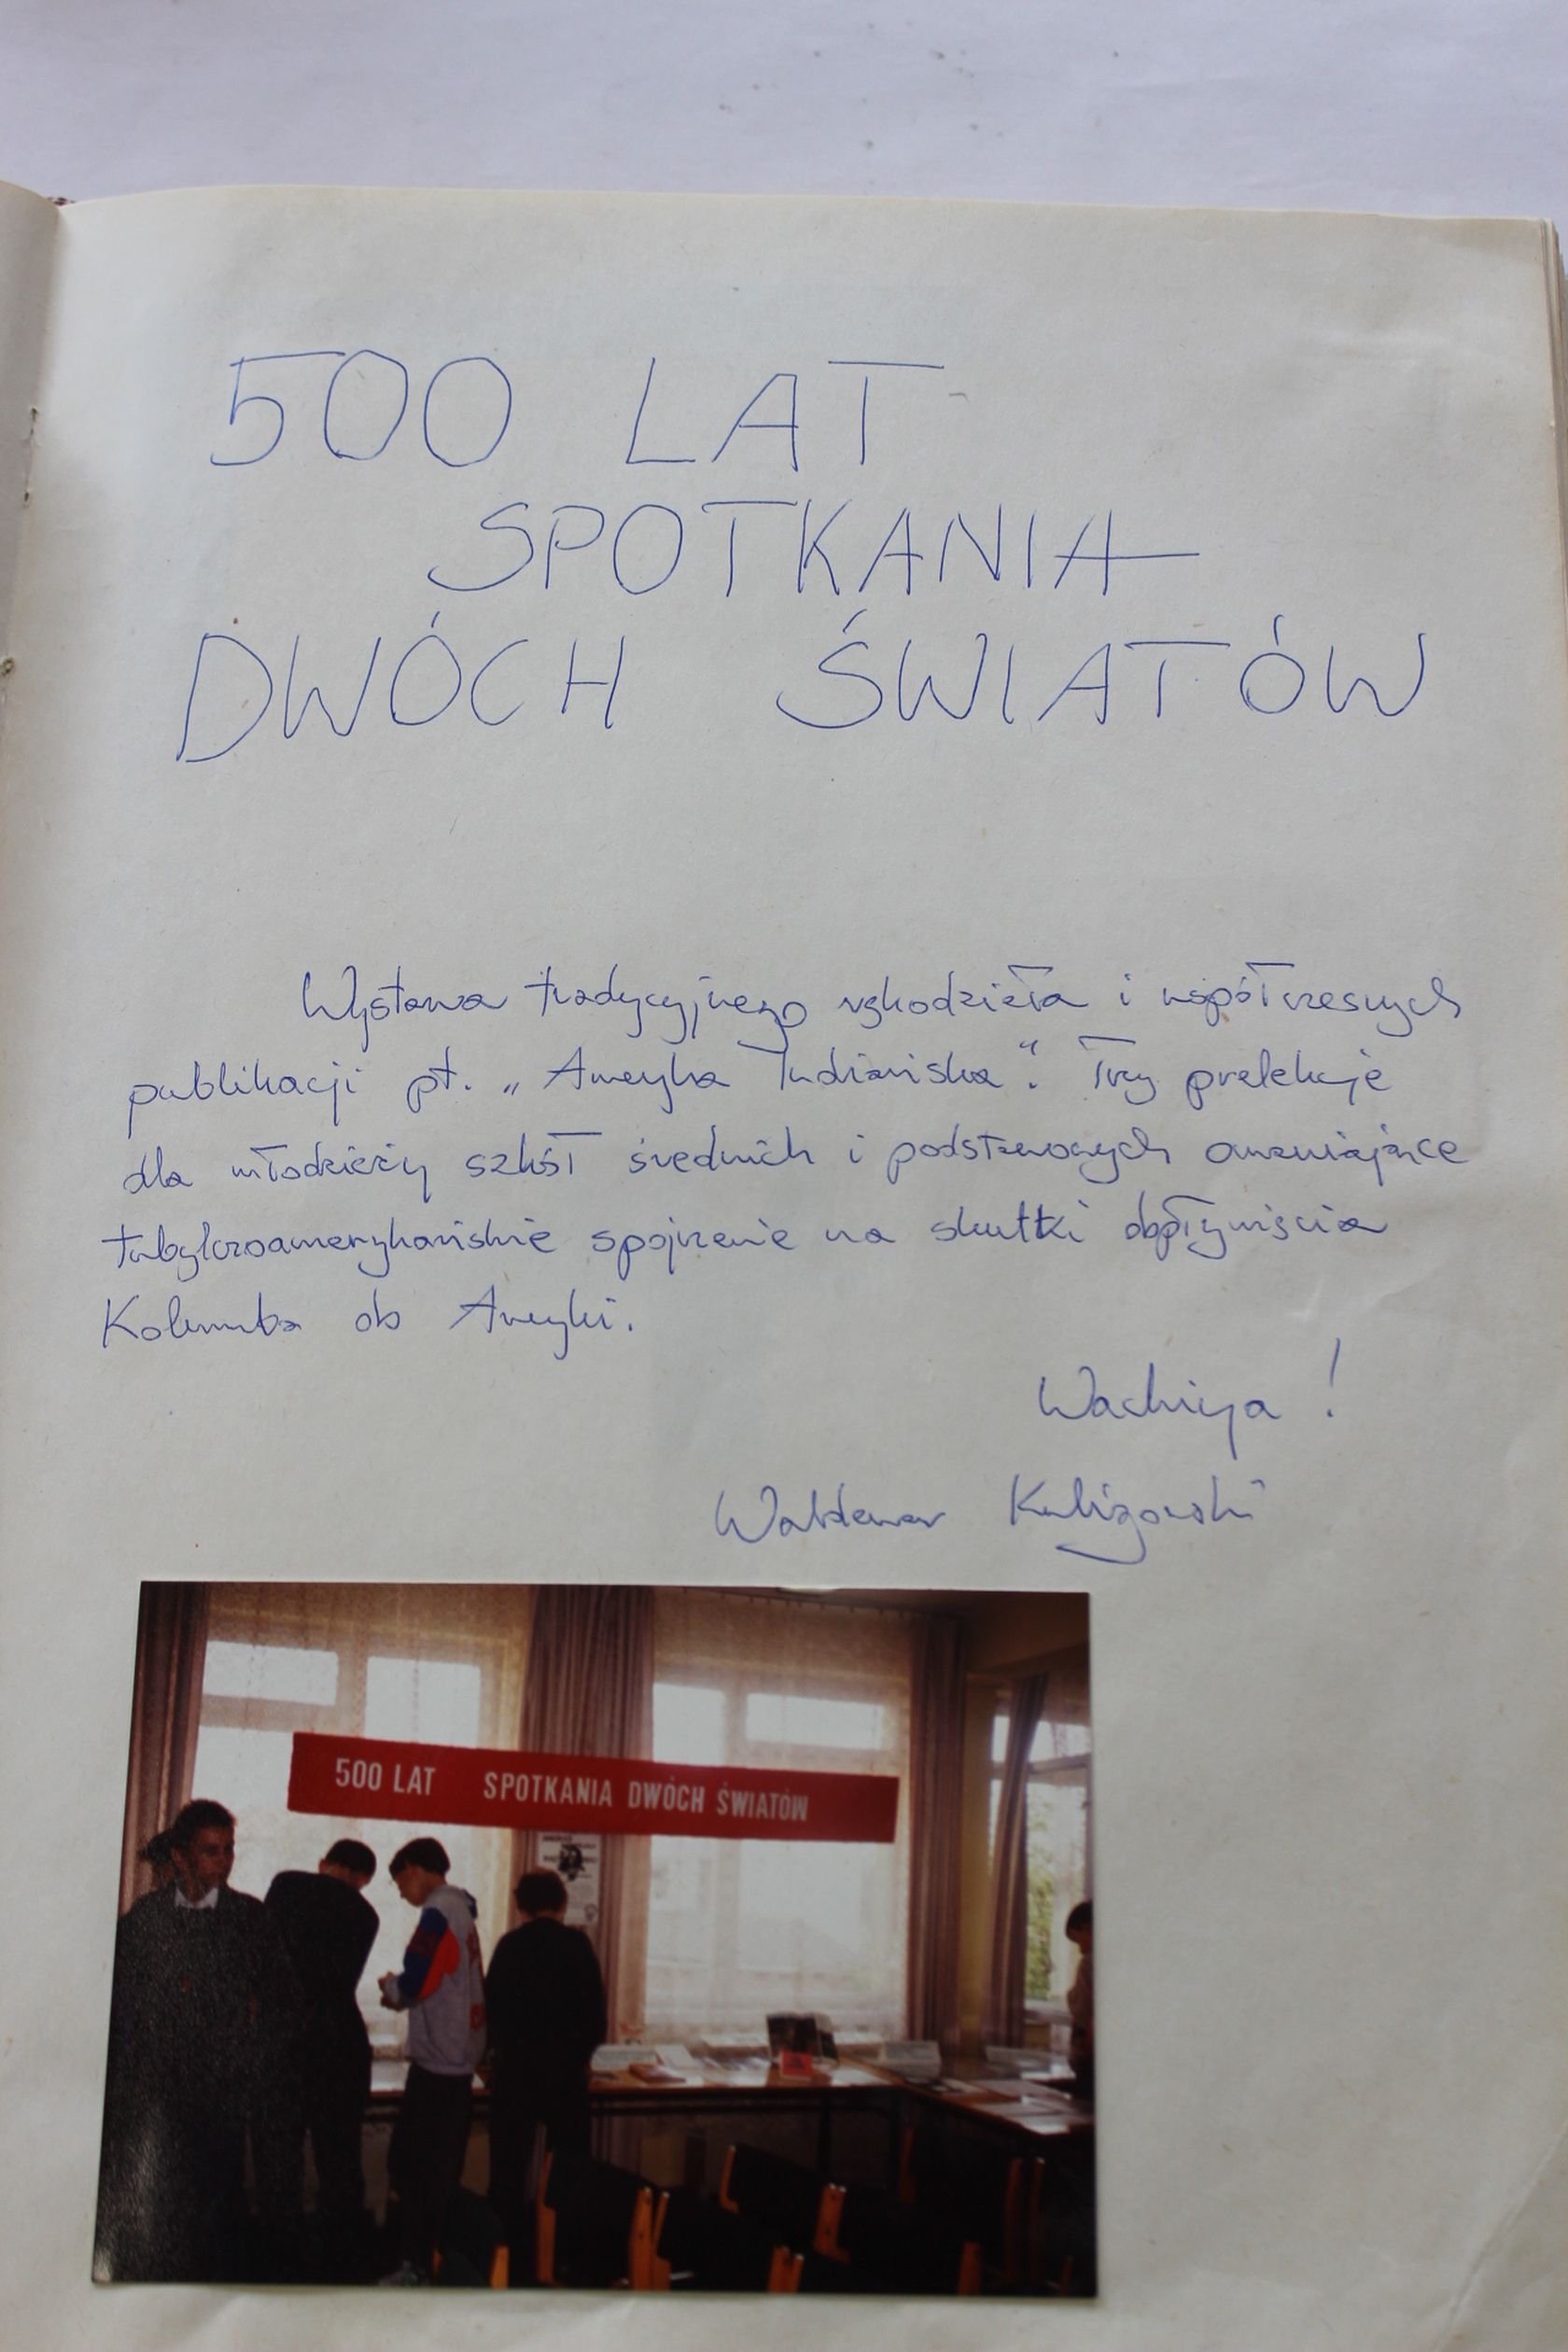 500 LAT
SPOTKANIA
DWÓCH ŚWIATÓW
Wystawa tradycyjnego rękodzieła i współczesnych
publikacji pt. „Ameryka Indiańska". Trzy prelekcje
dla młodzieży szkół średnich i podstawowych omawiające
tubylczoamerykańskie spojrzenie na skutki dopłynięcia
Kolumba do Ameryki.
Wachiya!
Waldemar Kuligowski
500 LAT SPOTKANIA DWÓCH ŚWIATÓW